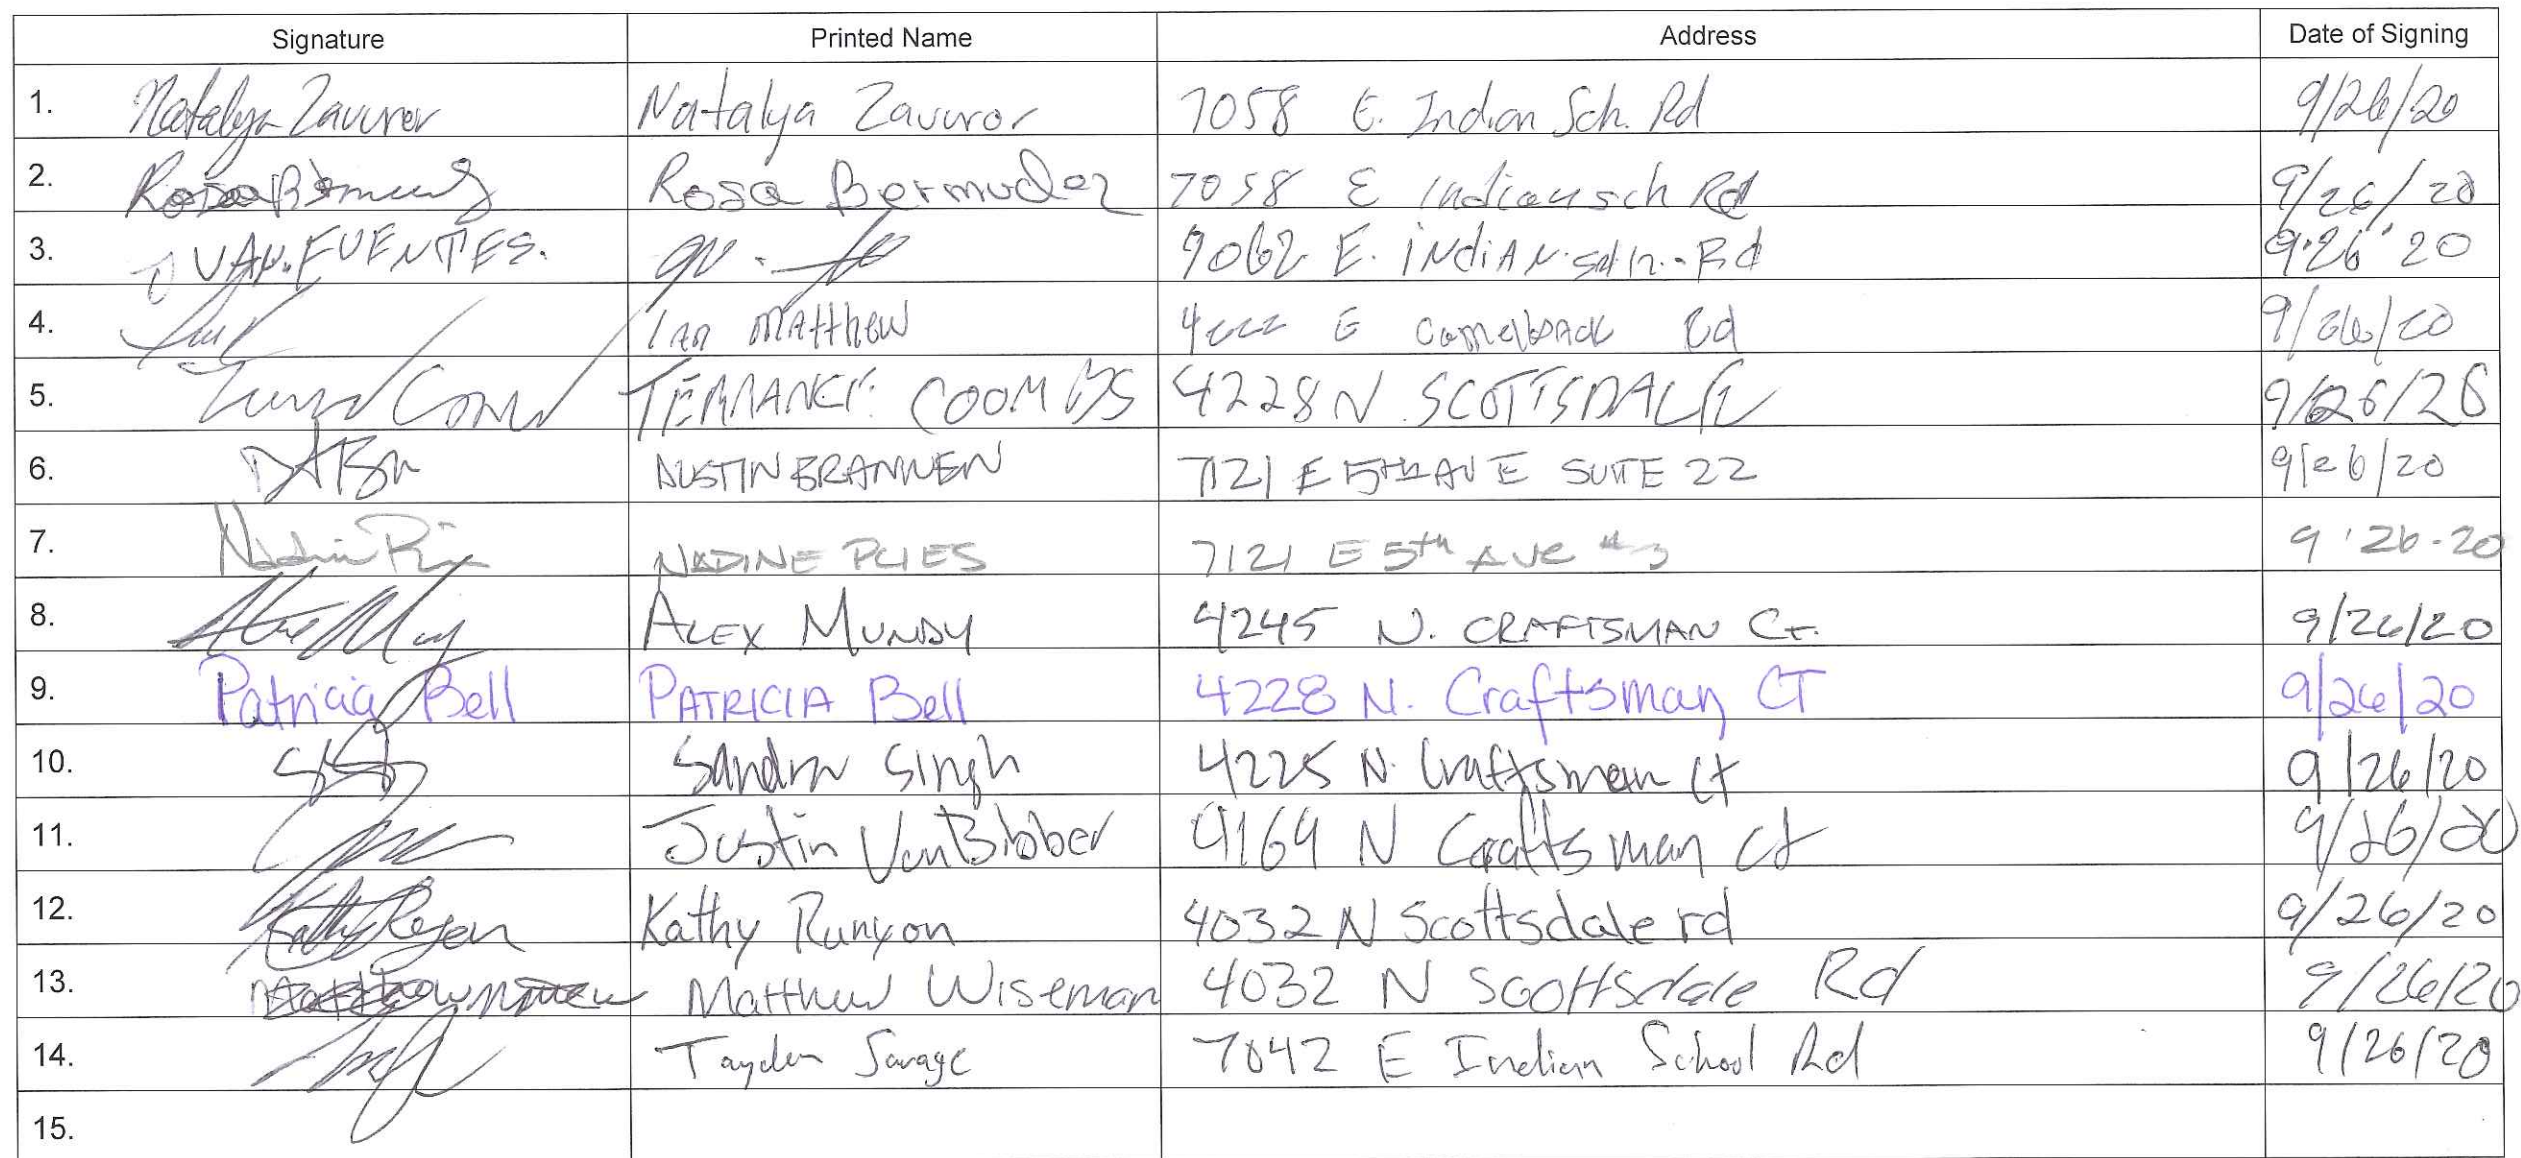 Signature Printed Name Address Date of Signing
1. Natalya Zavurov Natalya Zavurov 7058 E. Indian Sch. Rd 9/26/20
2. Rosa Bermudez Rosa Bermudez 7058 E Indian sch Rd 9/26/20
3. VAN. FUENTES. 9062 E. INDIAN Rd 9.26.20
4. Ian Matthew E Camelback Rd 9/26/20
5. TERRANCE COOMBS 4228 N. SCOTTSDALE 9/26/20
6. DUSTIN BRANNEN 7121 E 5th AVE SUITE 22 9/26/20
7. NADINE 7121 E 5th AVE #3 9.26.20
8. ALEX MUNDY 4245 N. CRAFTSMAN CT. 9/26/20
9. Patricia Bell PATRICIA Bell 4228 N. Craftsman CT 9/26/20
10. Sandra Singh 4225 N. Craftsman Ct 9/26/20
11. Justin VanBibber 4169 N Craftsman Ct 9/26/20
12. Kathy Runyon Kathy Runyon 4032 N Scottsdale rd 9/26/20
13. Matthew Wiseman 4032 N Scottsdale Rd 9/26/20
14. Tayden Savage 7042 E Indian School Rd 9/26/20
15.